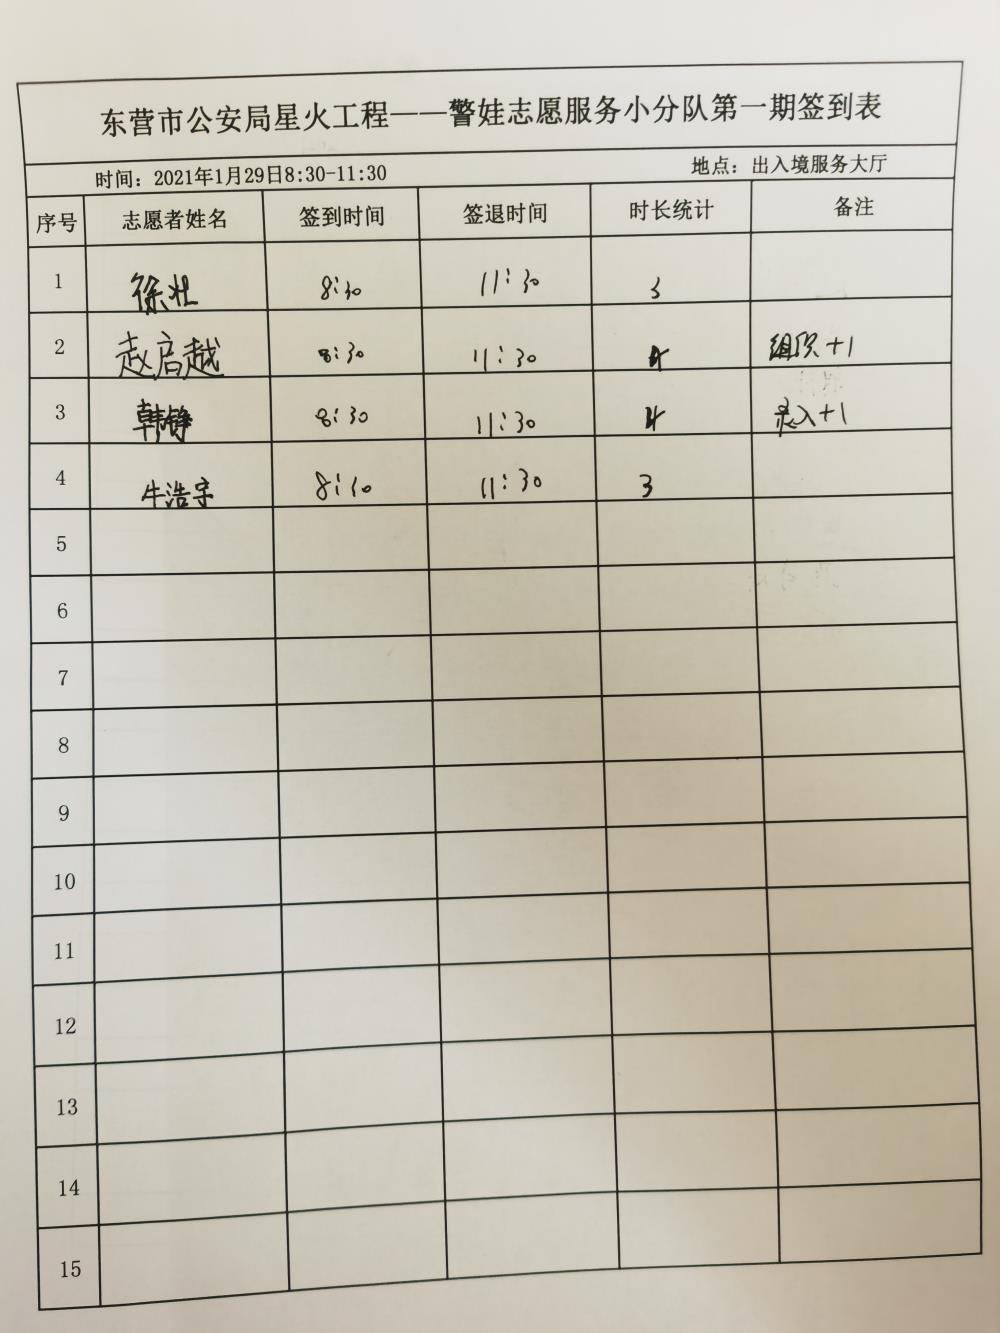 东营市公安局星火工程——警娃志愿服务小分队第一期签到表
时间：2021年1月29日8:30-11:30 地点：出入境服务大厅
序号 志愿者姓名 签到时间 签退时间 时长统计 备注
1 徐壮 8:30 11:30 3
2 赵启越 8:30 11:30 4 组织+1
3 韩铮 8:30 11:30 4 录入+1
4 牛浩宇 8:30 11:30 3
5
6
7
8
9
10
11
12
13
14
15